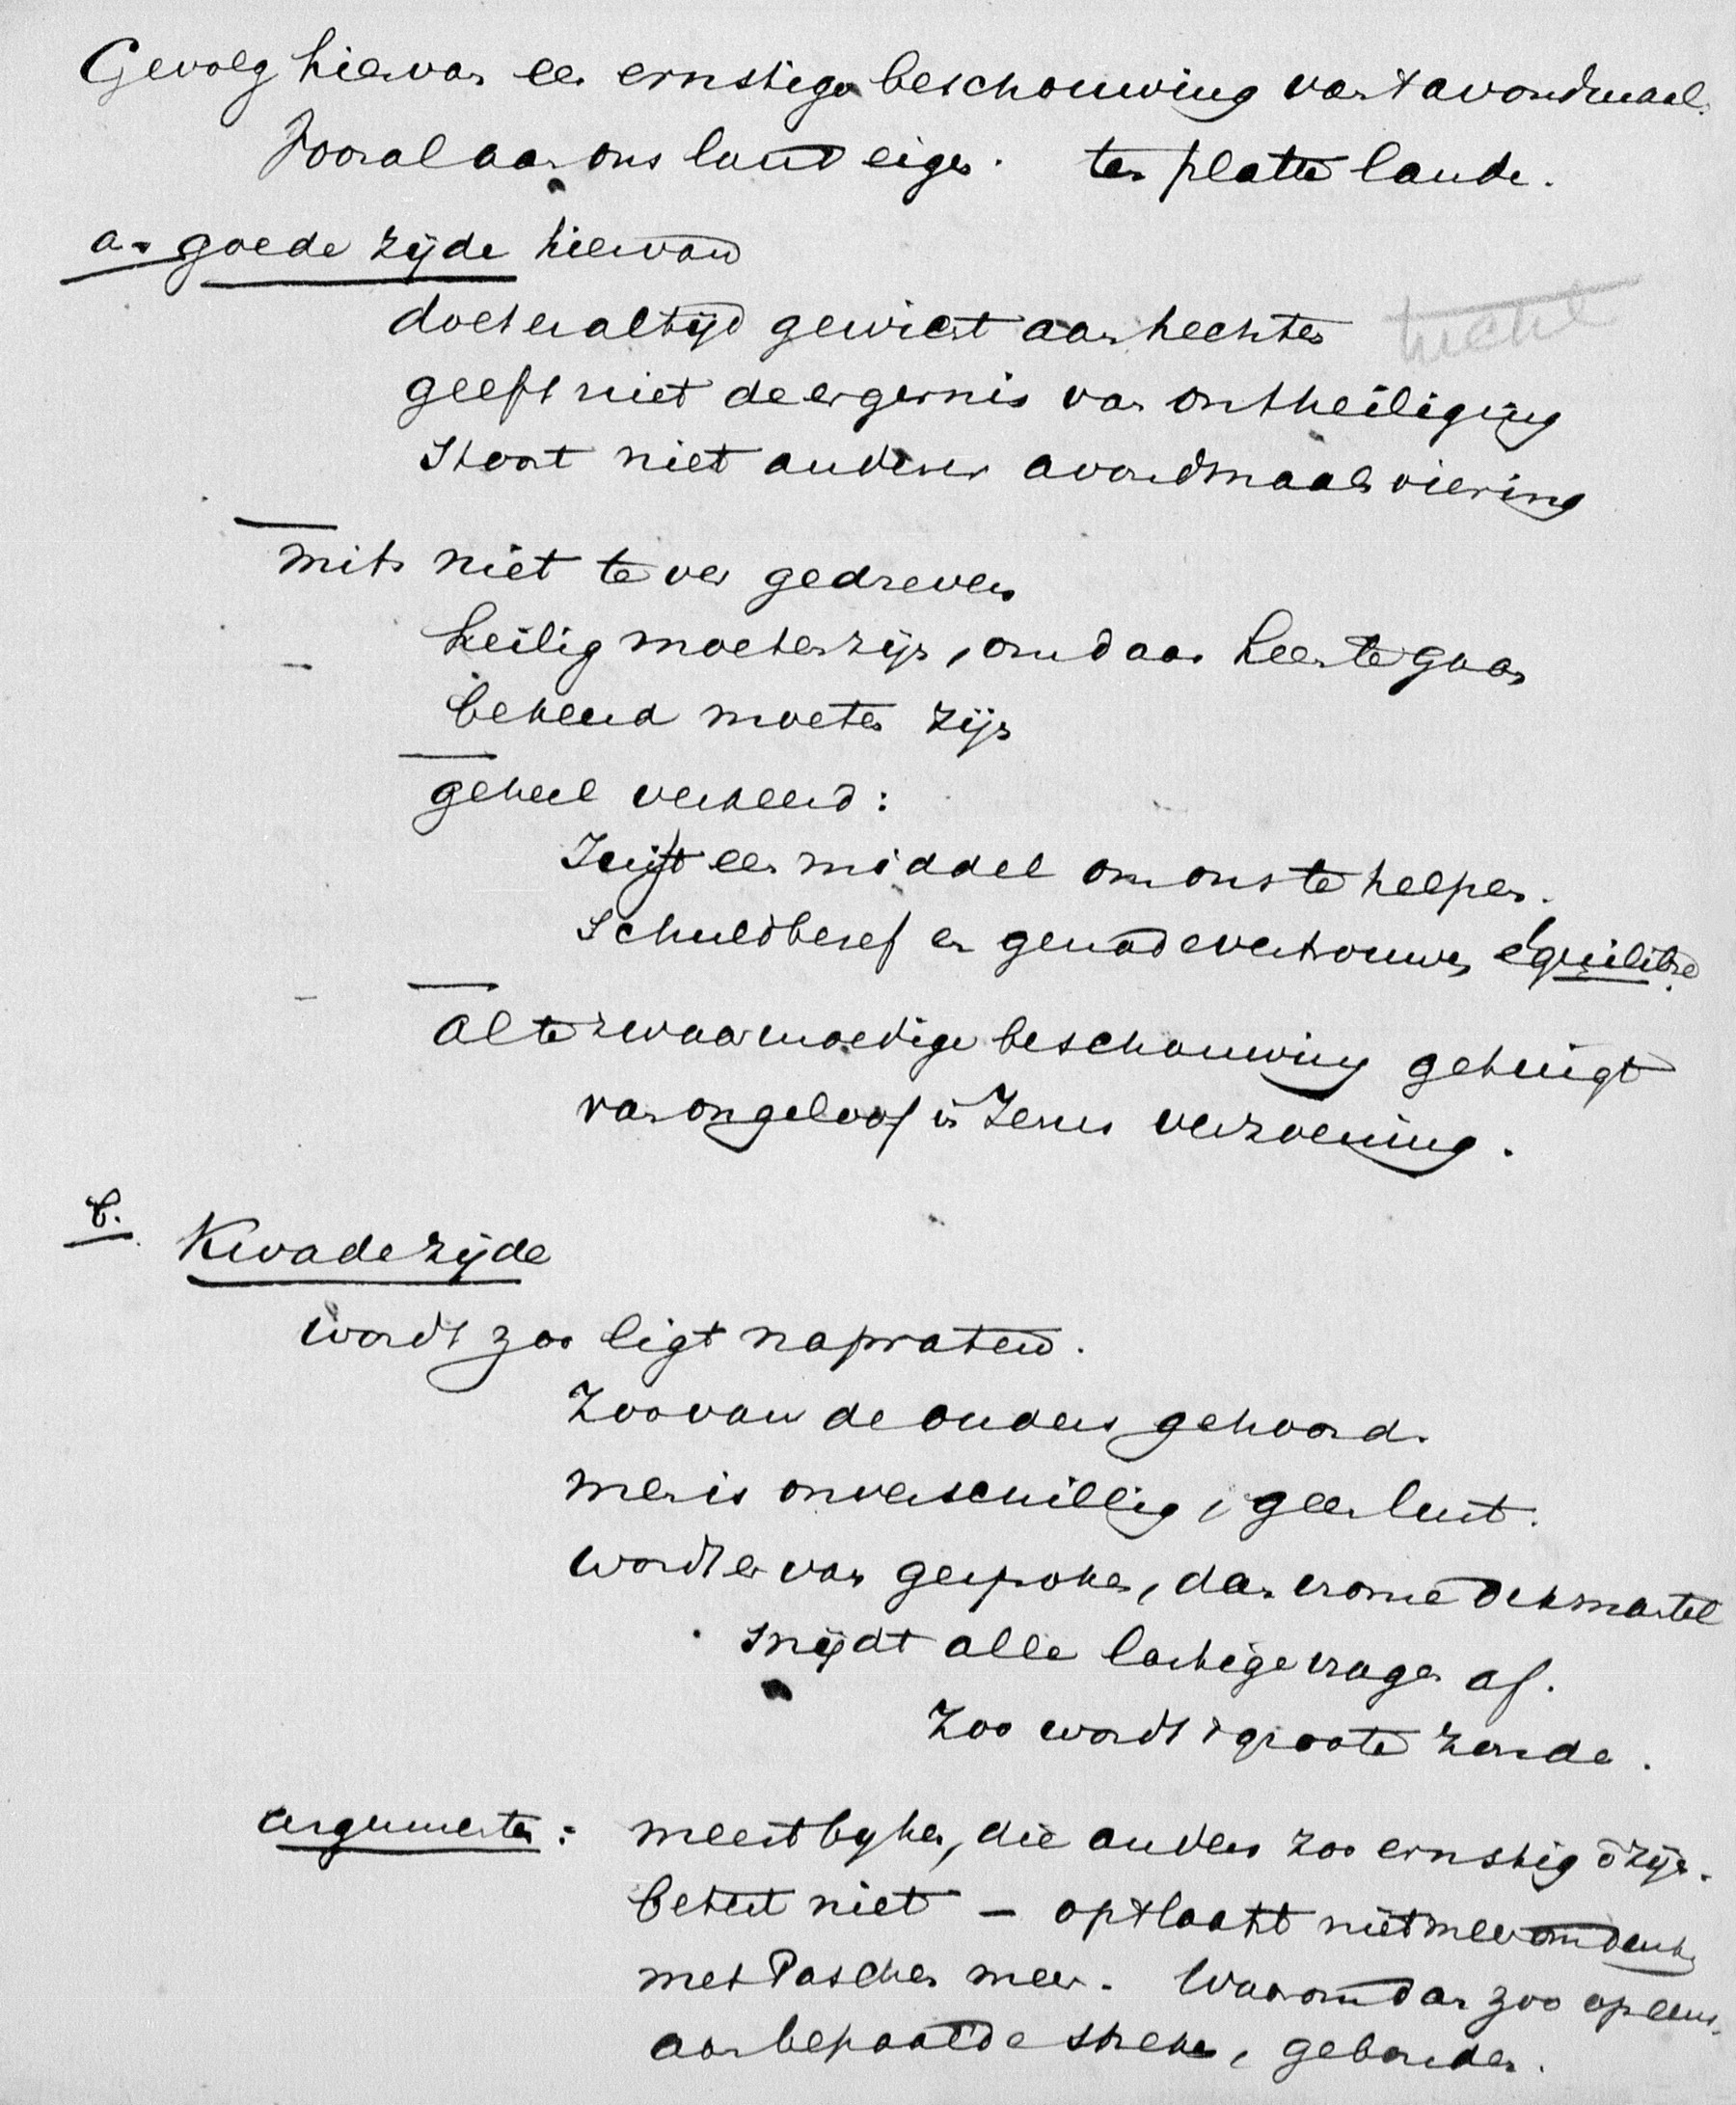 Gevolg hiervan een ernstige beschouwing van 't avondmaal.
Vooral aan ons land eigen. ten platte lande.
a. goede zijde hiervan
doet er altijd gewicht aan hechten
geeft niet de ergernis van ontheiliging
stoort niet anderer avondmaalsviering
mits niet te ver gedreven
heilig moeten zijn, om daar heen te gaan
bekeerd moeten zijn
geheel verkeerd:
Juist een middel om ons te helpen.
Schuldbesef en genadevertrouwen équilibre
al te zwaarmoedige beschouwing getuigt
van ongeloof in Jezus verzoening.
b. Kwade zijde
wordt zoo ligt napratend.
Zoo van de ouders gehoord.
men is onverschillig, geen lust.
wordt er van gesproken, dan vrome dekmantel
snijdt alle lastige vragen af.
Zoo wordt 't groote zonde.
argumenten: meest by hen, die anders zoo ernstig zijn.
betert niet — op 't laatst niet meer om denken
met Paschen meer. Waarom dan zoo opeens,
aan bepaalde streken, gebonden.